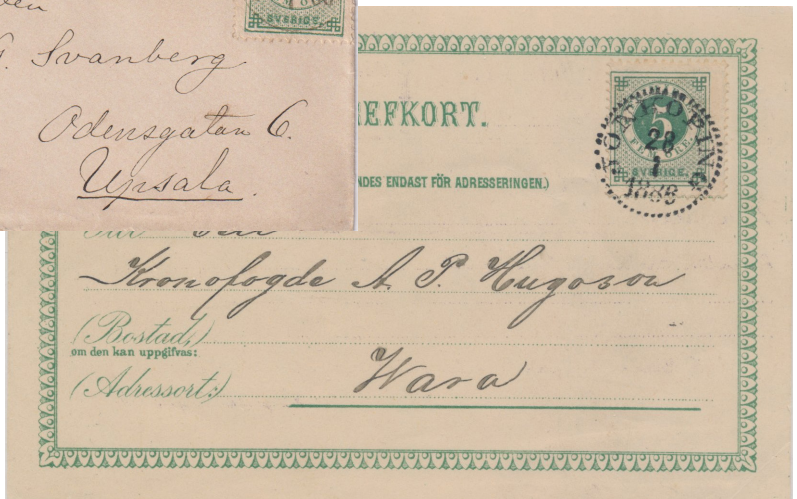 1888
SVERIGE.
Svanberg
Odensgatan 6.
Upsala.
EFKORT.
NDES ENDAST FÖR ADRESSERINGEN.)
5
FEM ÖRE
SVERIGE.
NORRKÖPING
28
1
1886
Kronofogde A. P. Hugoson
(Bostad,)
om den kan uppgifvas:
(Adressort:)
Wara